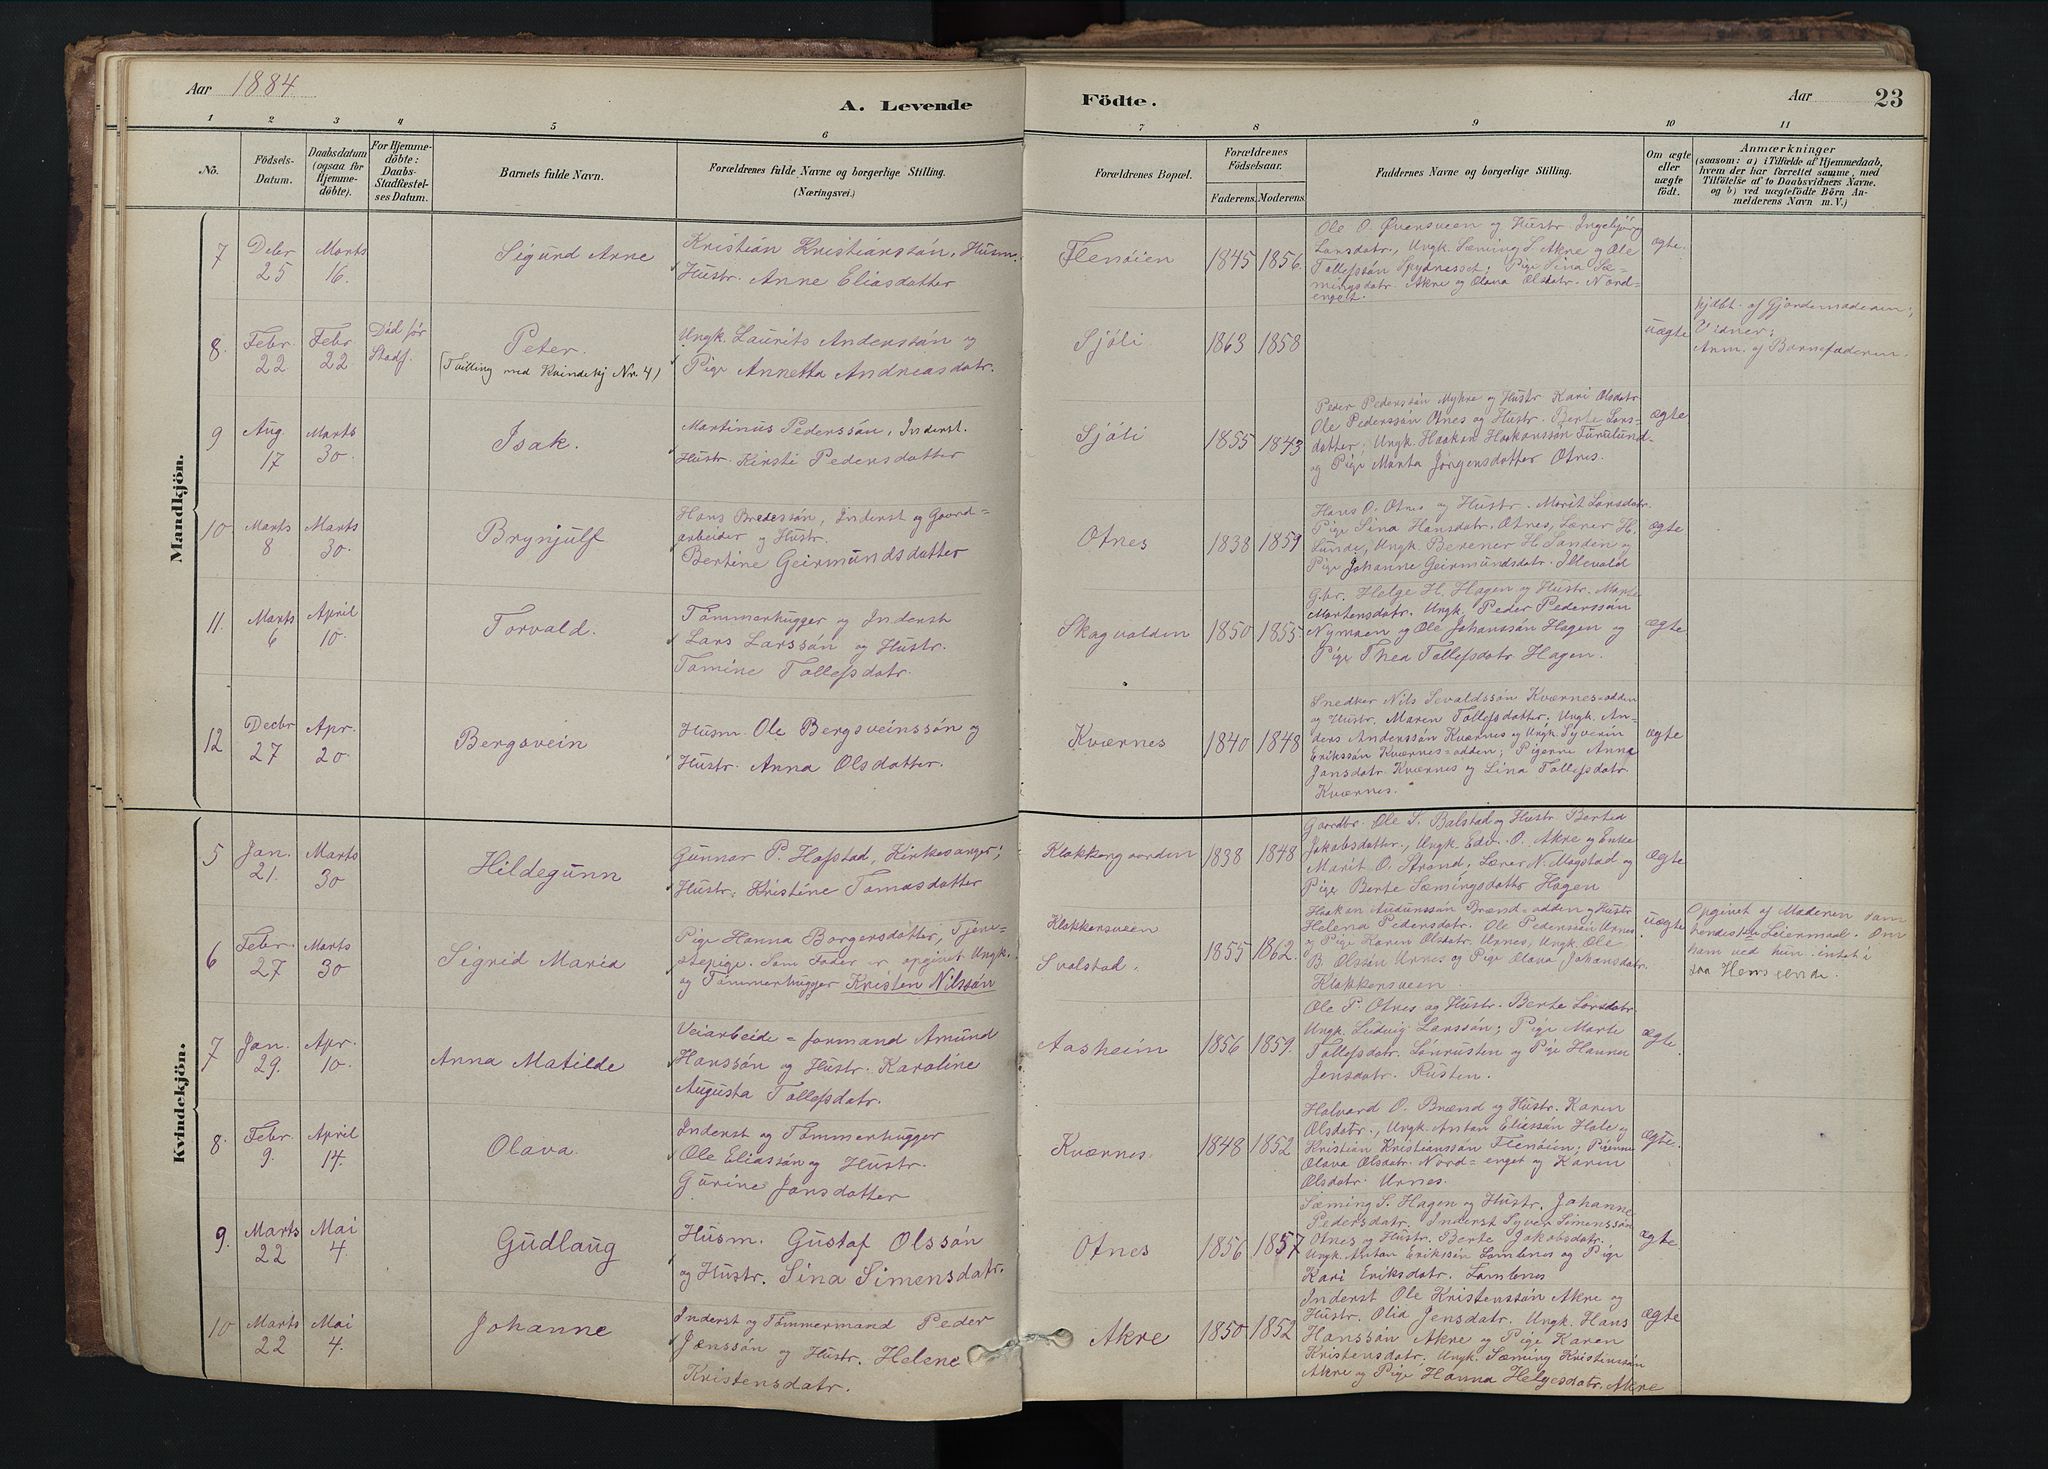 Aar 1884
A. Levende Födte.
Aar 23
1 2 3 4 5 6 7 8 9 10 11
No.
Födsels-Datum.
Daabsdatum (ogsaa for Hjemme-döbte).
For Hjemme-döbte: Daabs-Stadfæstel-ses Datum.
Barnets fulde Navn.
Forældrenes fulde Navne og borgerlige Stilling.
(Næringsvei.)
Forældrenes Bopæl.
Forældrenes Födselsaar.
Faderens. Moderens.
Faddernes Navne og borgerlige Stilling.
Om ægte eller uægte födt.
Anmærkninger
(saasom: a) i Tilfælde af Hjemmedaab,
hvem der har forrettet samme, med
Tilföielse af to Daabsvidners Navne.
og b) ved uægtefödte Börn An-
melderens Navn m. V.)
Mandkjön.
7 Debr 25 Marts 16. Sigurd Arne
Kristian Kristianssön, Husm.
Hustr. Anne Eliasdatter
Flenöien 1845 1856.
Ole O. Øversveen og Hustr. Ingebjörg
Larsdatr., Ungk. Sæming S. Akre og Ole
Tollefssön Spydnesset; Pige Sina Sæ-
mingsdatr. Akre og Olava Olsdatr. Nord-
enget.
ægte.
8. Febr. 22 Febr 22 Död för Stadf. Peter.
(Tvilling med Kvindekj Nr. 4)
Ungk. Laurits Anderssön og
Pige Annetta Andreasdatr.
Sjöli 1863 1858
uægte
hjdbt. af Gjordemoderen;
Vidner;
Anm. af Barnefaderen.
9 Aug. 17 Marts 30. Isak.
Martinus Pederssön, Inderst.
Hustr. Kirsti Pedersdatter
Sjöli 1855 1843
Peder Pederssön Myhre og Hustr Kari Olsdatr
Ole Pederssön Otnes og Hustr. Berte Lars-
datter; Ungk. Haakon Haakonssön Furulund
og Pige Marta Jörgensdatter Otnes.
ægte
10 Marts 8 Marts 30. Brynjulf
Hans Bredessön, Inderst og Gaard=
arbeider og Hustr.
Bertine Geirmundsdatter
Otnes 1838 1859
Hans O. Otnes og Hustr. Marit Larsdatr.
Pige Sina Hansdatr. Otnes, Lærer H.
Lunde, Ungk. Berener H. Sanden og
Pige Johanne Geirmundsdatr. Illevold
ægte
11. Marts 6 April 10. Torvald.
Tömmerhugger og Inderst
Lars Larssön og Hustr.
Tomine Tollefsdatr.
Skagvolden 1850 1855
Gbr. Helge H. Hagen og Hustr. Marte
Martensdatr. Ungk. Peder Pederssön
Nymoen og Ole Johanssön Hagen og
Pige Thea Tollefsdatr Hagen.
ægte
12 Decbr 27 Apr. 20. Bergsvein
Husm. Ole Bergsveinssön og
Hustr. Anna Olsdatter.
Kværnes 1840 1848
Snedker Nils Sevaldssön Kværnes=odden
og Hustr. Maren Tollefsdatter. Ungk. An-
ders Anderssön Kværnes og Ungk. Syverin
Erikssön Kværnes=odden; Pigerne Anna
Jonsdatr Kværnes og Lina Tollefsdatr.
Kværnes.
ægte
Kvindekjön.
5 Jan. 21. Marts 30 Hildegunn
Gunnar P. Hofstad, Kirkesanger;
Hustr. Kristine Tomasdatter
Klokkergaarden 1838 1848
Gaardbr. Ole S. Balstad og Hustr Bertea
Jakobsdatter., Ungk Edv. O. Akre og Enke
Marit O. Strand, Lærer N. Mogstad og
Pige Berte Sæmingsdattr Hagen
ægte
6 Febr. 27 Marts 30 Sigrid Maria
Pige Hanna Borgersdatter, Tjene-
stepige. Som Fader er opgivet Ungk.
og Tömmerhugger Kristen Nilssön
Klokkersveen
Svalstad. 1855 1862.
Haakon Audunssön Brænd=odden og Hustr
Helena Pedersdatr. Ole Pederssön Urnes
og Pige Karen Olsdatr. Urnes, Ungk. Ole
B. Olssön Urnes og Pige Olava Johansdatr.
Klokkersveen.
uægte
Opgivet af Moderen som
hendes Leiermaal. Om
ham ved hun intet i
saa Henseende.
7 Jan. 29. Apr. 10. Anna Matilde
Veiarbeide=formand Amund
Hanssön og Hustr. Karoline
Augusta Tollefsdatr.
Aasheim 1856 1859.
Ole P. Otnes og Hustr. Berte Larsdatr.
Ungk. Ludvig Larssön; Pige Marte
Tollefsdatr. Lönrusten og Pige Hanna
Jensdatr. Rusten.
ægte.
8. Febr. 9. April 14. Olava.
Inderst og Tömmerhugger
Ole Eliassön og Hustr.
Gurine Jonsdatter
Kværnes. 1848 1852
Halvard O. Brænd og Hustr. Karen
Olsdatr., Ungk. Anton Eliassön Hole og
Kristian Kristianssön Flenöien; Pigerne
Olava Olsdatr. Nord=enget og Karen
Olsdatr. Urnes.
ægte.
9. Marts 22 Mai 4. Gudlaug
Husm. Gustaf Olssön
og Hustr. Sina Simensdatr.
Otnes 1856 1857
Sæming S. Hagen og Hustr. Johanne
Pedersdatr. Inderst Syver Simenssön
Otnes og Hustr. Berte Jakobsdatr.
Ungk. Anton Erikssön Lomlenes og Pige
Kari Eriksdatr. Lomlenes
ægte
10 Marts 22 Mai 4. Johanne
Inderst og Tömmermand Peder
Jenssön og Hustr. Helene
Kristensdatr.
Akre 1850 1852
Inderst Ole Kristenssön Akre og
Hustr. Olia Jensdatr. Ungk. Hans
Hanssön Akre og Pige Karen
Kristensdatr. Ungk. Sæming Kristenssön
Akre og Pige Hanna Helgesdatr. Akre
ægte